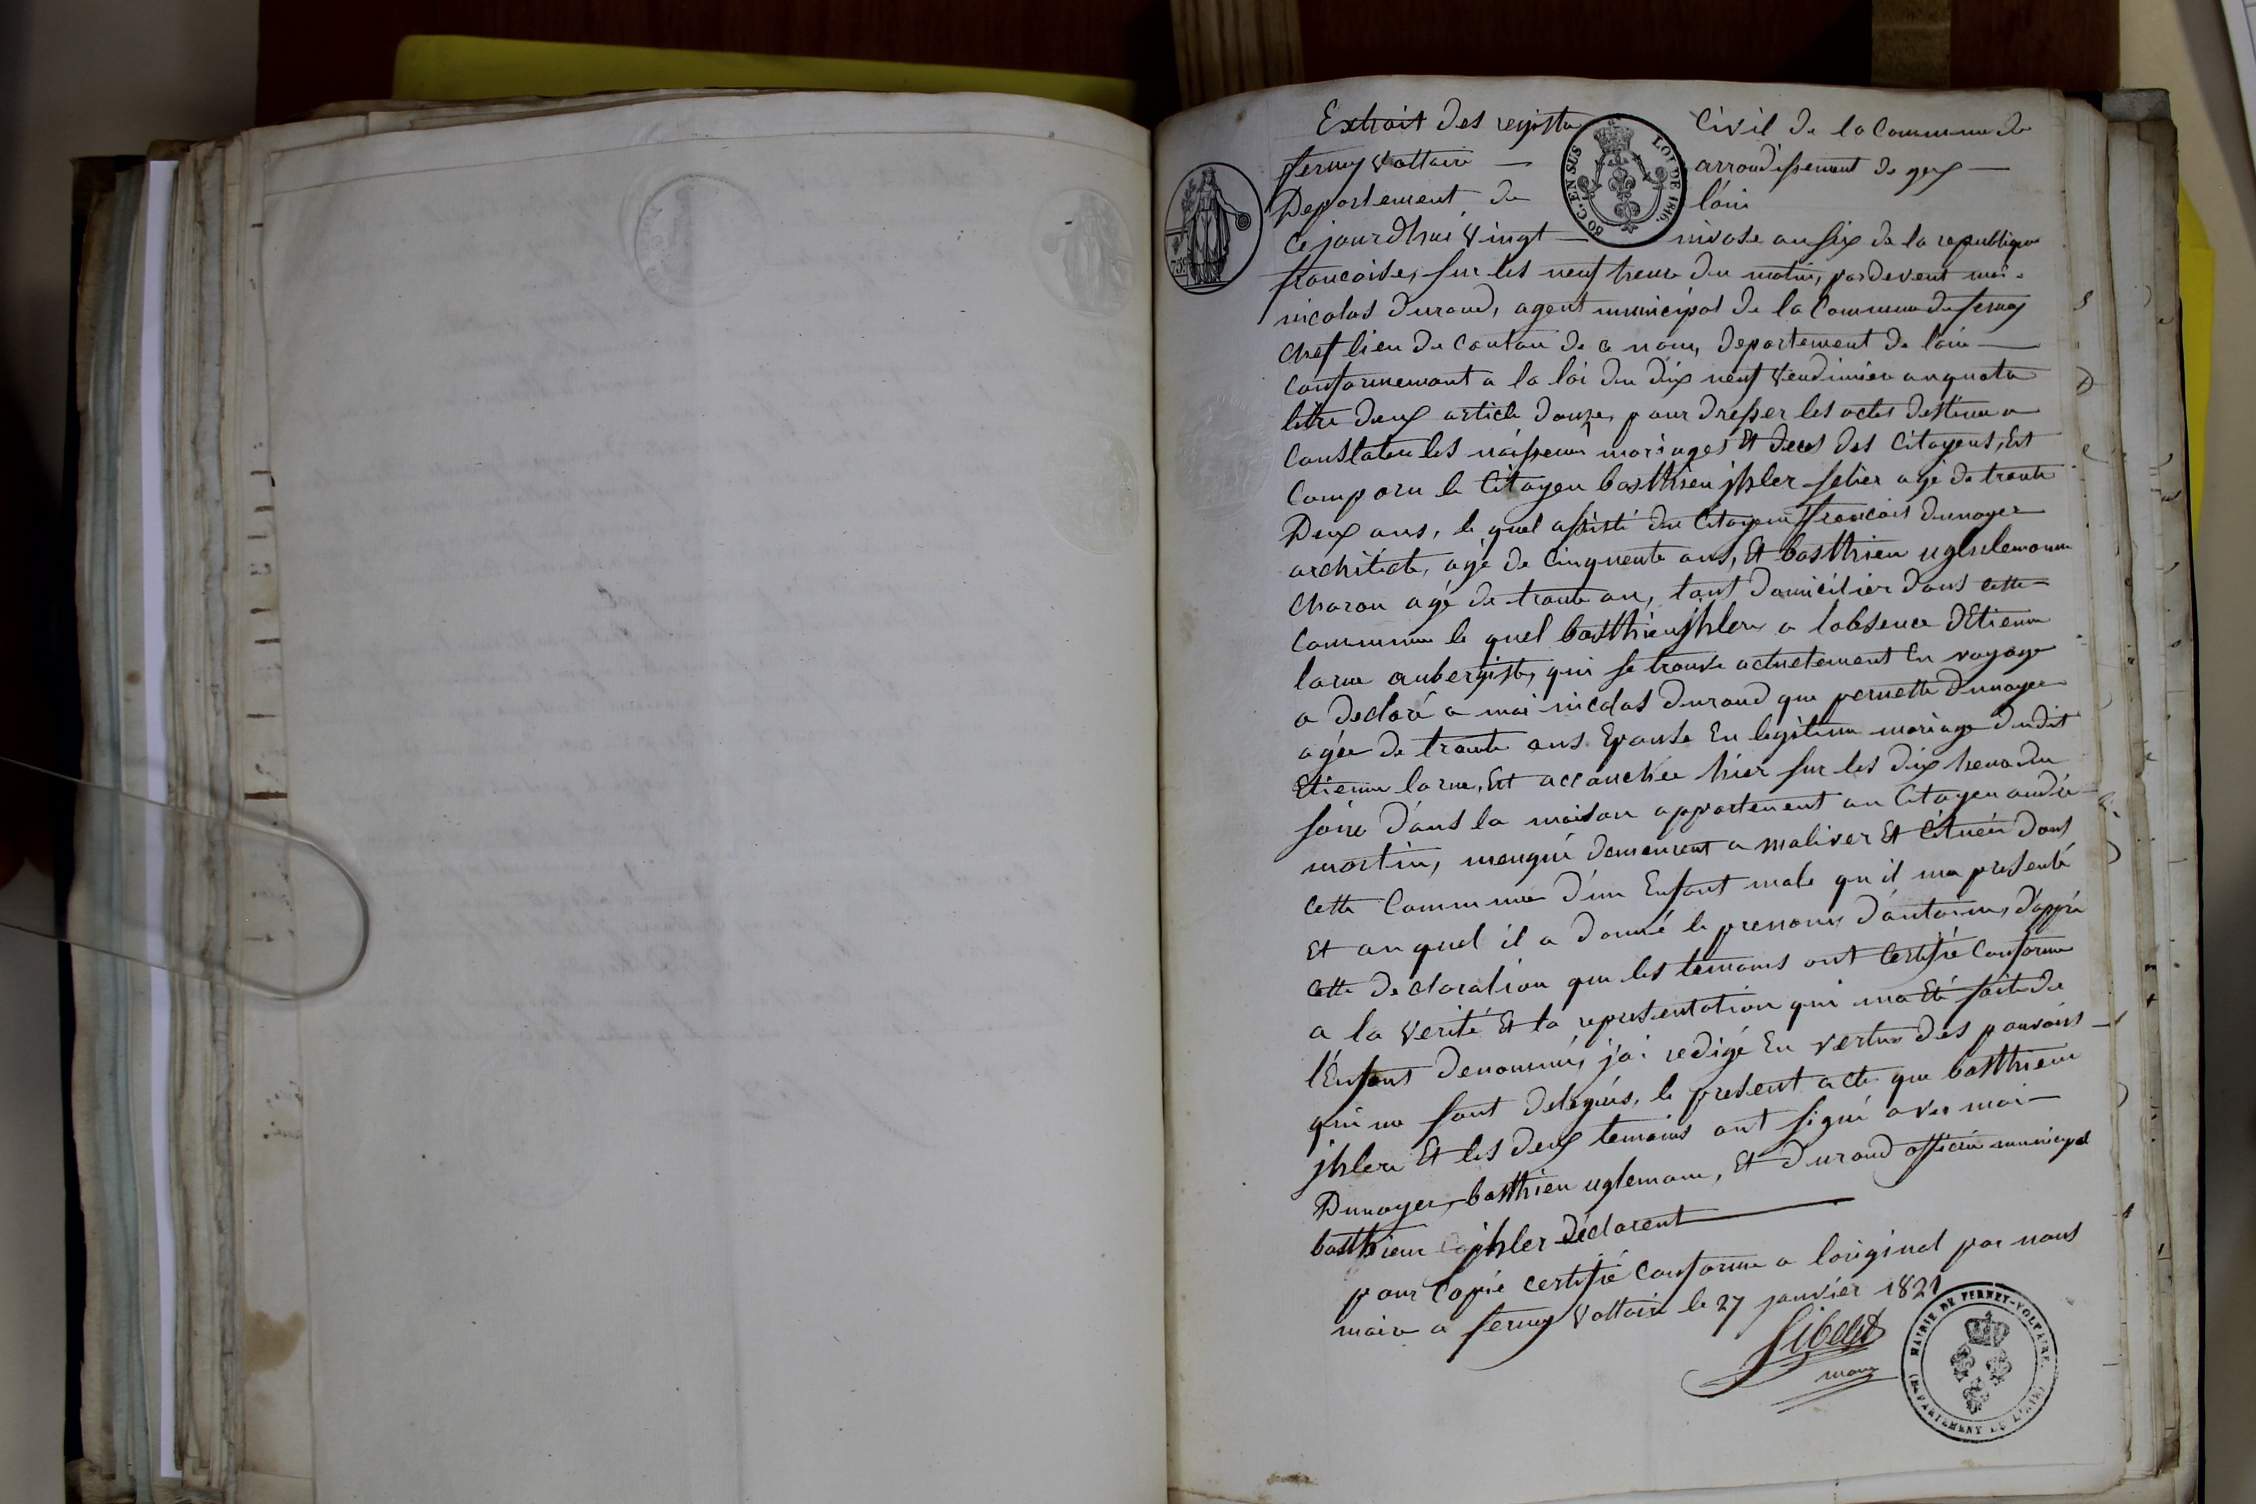 Extrait des registre civil de la commune de
ferney Voltaire — arrondissement de gex —
Departement de l'ain
Ce jourdhui Vingt — nivose an six de la republique
francoise, sur les neuf heure du matin, pardevent moi
nicolas durand, agent municipal de la Commune de ferney
chef lieu de canton de ce nom, departement de l'ain —
conformement a la loi du dix neuf Vendimier an quatre
litre deux article douze, pour dresser les actes destinee a
Constater les naissence mariages Et deces des Citoyens, Est
Comparu le Citoyen basthien jhler selier agé de trente
Deux ans, le quel assisté du Citoyen francois dunoyer
architecte, agé de cinquente ans, Et basthien uglulemann
charon agé de trente an, tout domicilier dans cette
Commune le quel basthien jhler, a labsence d'Etienne
larue aubergiste, qui se trouve actuelement En voyage
a declaré a moi nicolas durand que pernette dunoyer
agée de trente ans Epouse En legitime mariage dudit
Etienne larue, Est accouchée hier sur les dix heure du
soire dans la maison appartenent au Citoyen andré
martin, demeurent a maliver Et cituée dans
cette Commune d'un Enfant male qu'il ma presenté
Et au quel il a donné le prenom d'antoine, d'appré
cette declaration que les temoins ont certifié conforme
a la verité Et la representation qui ma Eté faite de
l'Enfant denommé, j'ai redigé En vertue des pouvoirs
qui me sont delegués, le present acte que basthien
jhler Et les deux temoins ont signé avec moi —
Dunoyer, basthien uglemann, Et durand officier municipal
basthien jhler declarent
pour Copie certifié conforme a l'original par nous
maire a ferney Voltaire le 27 janvier 1821
maire
50 C. EN SUS
LOI DE 1816.
75
MAIRIE DE FERNEY-VOLTAIRE.
(DEPARTEMENT DE L'AIN)